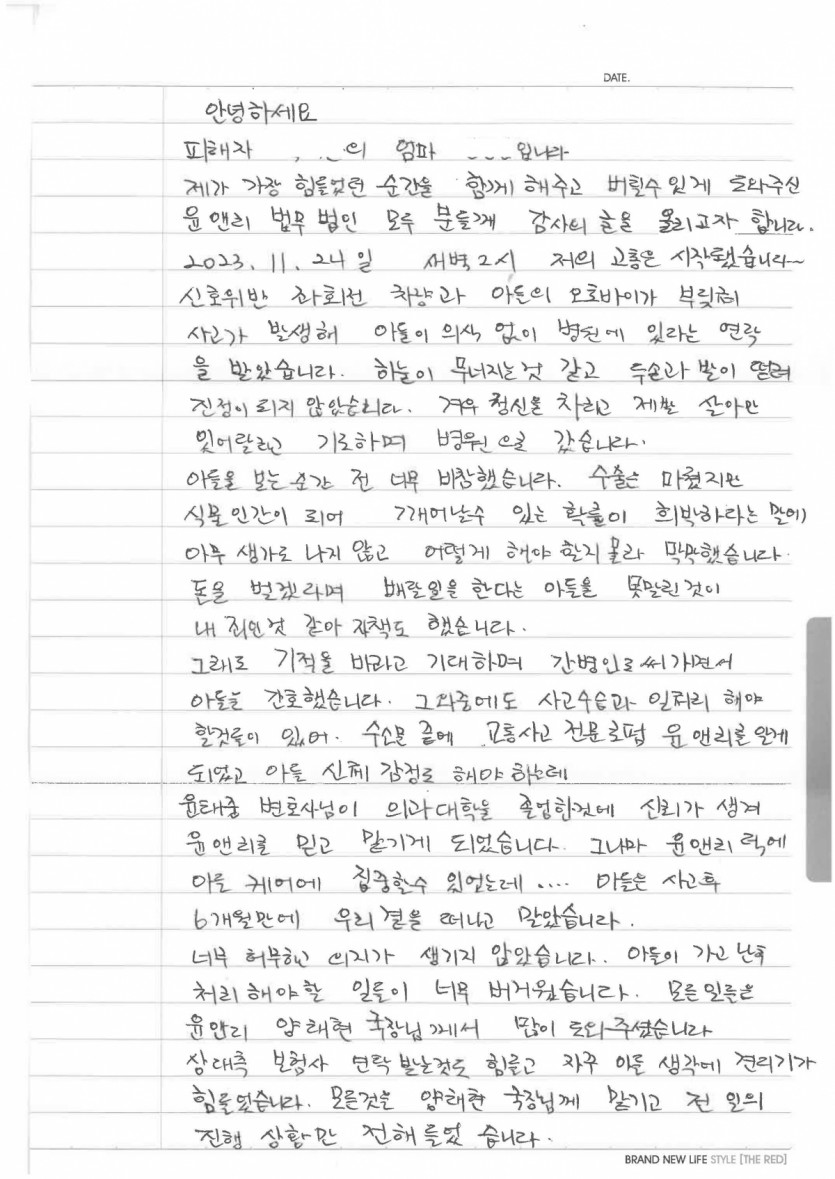 DATE.
안녕하세요
피해자 의 엄마 입니다
제가 가장 힘들었던 순간을 함께 해주고 버틸수 있게 도와주신
윤앤리 법무 법인 모두 분들께 감사의 글을 올리고자 합니다.
2023. 11. 24일 새벽 2시 저의 고통은 시작됐습니다~
신호위반 좌회전 차량과 아들의 오토바이가 부딪혀
사고가 발생해 아들이 의식 없이 병원에 있다는 연락
을 받았습니다. 하늘이 무너지는것 같고 두손과 발이 떨려
진정이 되지 않았습니다. 겨우 정신을 차리고 제발 살아만
있어달라고 기도하며 병원으로 갔습니다.
아들을 보는 순간 전 너무 비참했습니다. 수술은 마쳤지만
식물인간이 되어 깨어날수 있는 확률이 희박하다는 말에
아무 생각도 나지 않고 어떻게 해야 할지 몰라 막막했습니다.
돈을 벌겠다며 배달일을 한다는 아들을 못말린것이
내 죄인것 같아 자책도 했습니다.
그래도 기적을 바라고 기대하며 간병인도 써가면서
아들을 간호했습니다. 그 와중에도 사고수습과 일처리 해야
할것들이 있어. 수소문 끝에 교통사고 전문로펌 윤앤리를 알게
되었고 아들 신체 감정도 해야 하는데
윤태중 변호사님이 의과대학을 졸업한것에 신뢰가 생겨
윤앤리를 믿고 맡기게 되었습니다. 그나마 윤앤리 덕에
아들 케어에 집중할수 있었는데 .... 아들은 사고후
6개월만에 우리 곁을 떠나고 말았습니다.
너무 허무하고 의지가 생기지 않았습니다. 아들이 가고 난후
처리해야할 일들이 너무 버거웠습니다. 모든일들은
윤앤리 양태현 국장님께서 많이 도와주셨습니다
상대측 보험사 연락 받는것도 힘들고 자꾸 아들 생각에 견디기가
힘들었습니다. 모든것은 양태현 국장님께 맡기고 전 일의
진행 상황만 전해 들었 습니다.
BRAND NEW LIFE STYLE [THE RED]